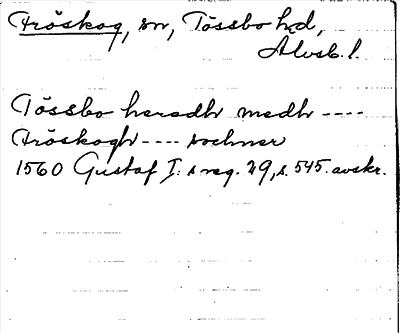 Fröskog, sn, Tössbo hd,
Älvsb. l.
Tössbo heradh medh ----
Fröskogh ---- sochner
1560 Gustaf I:s reg. 29, s. 545. avskr.